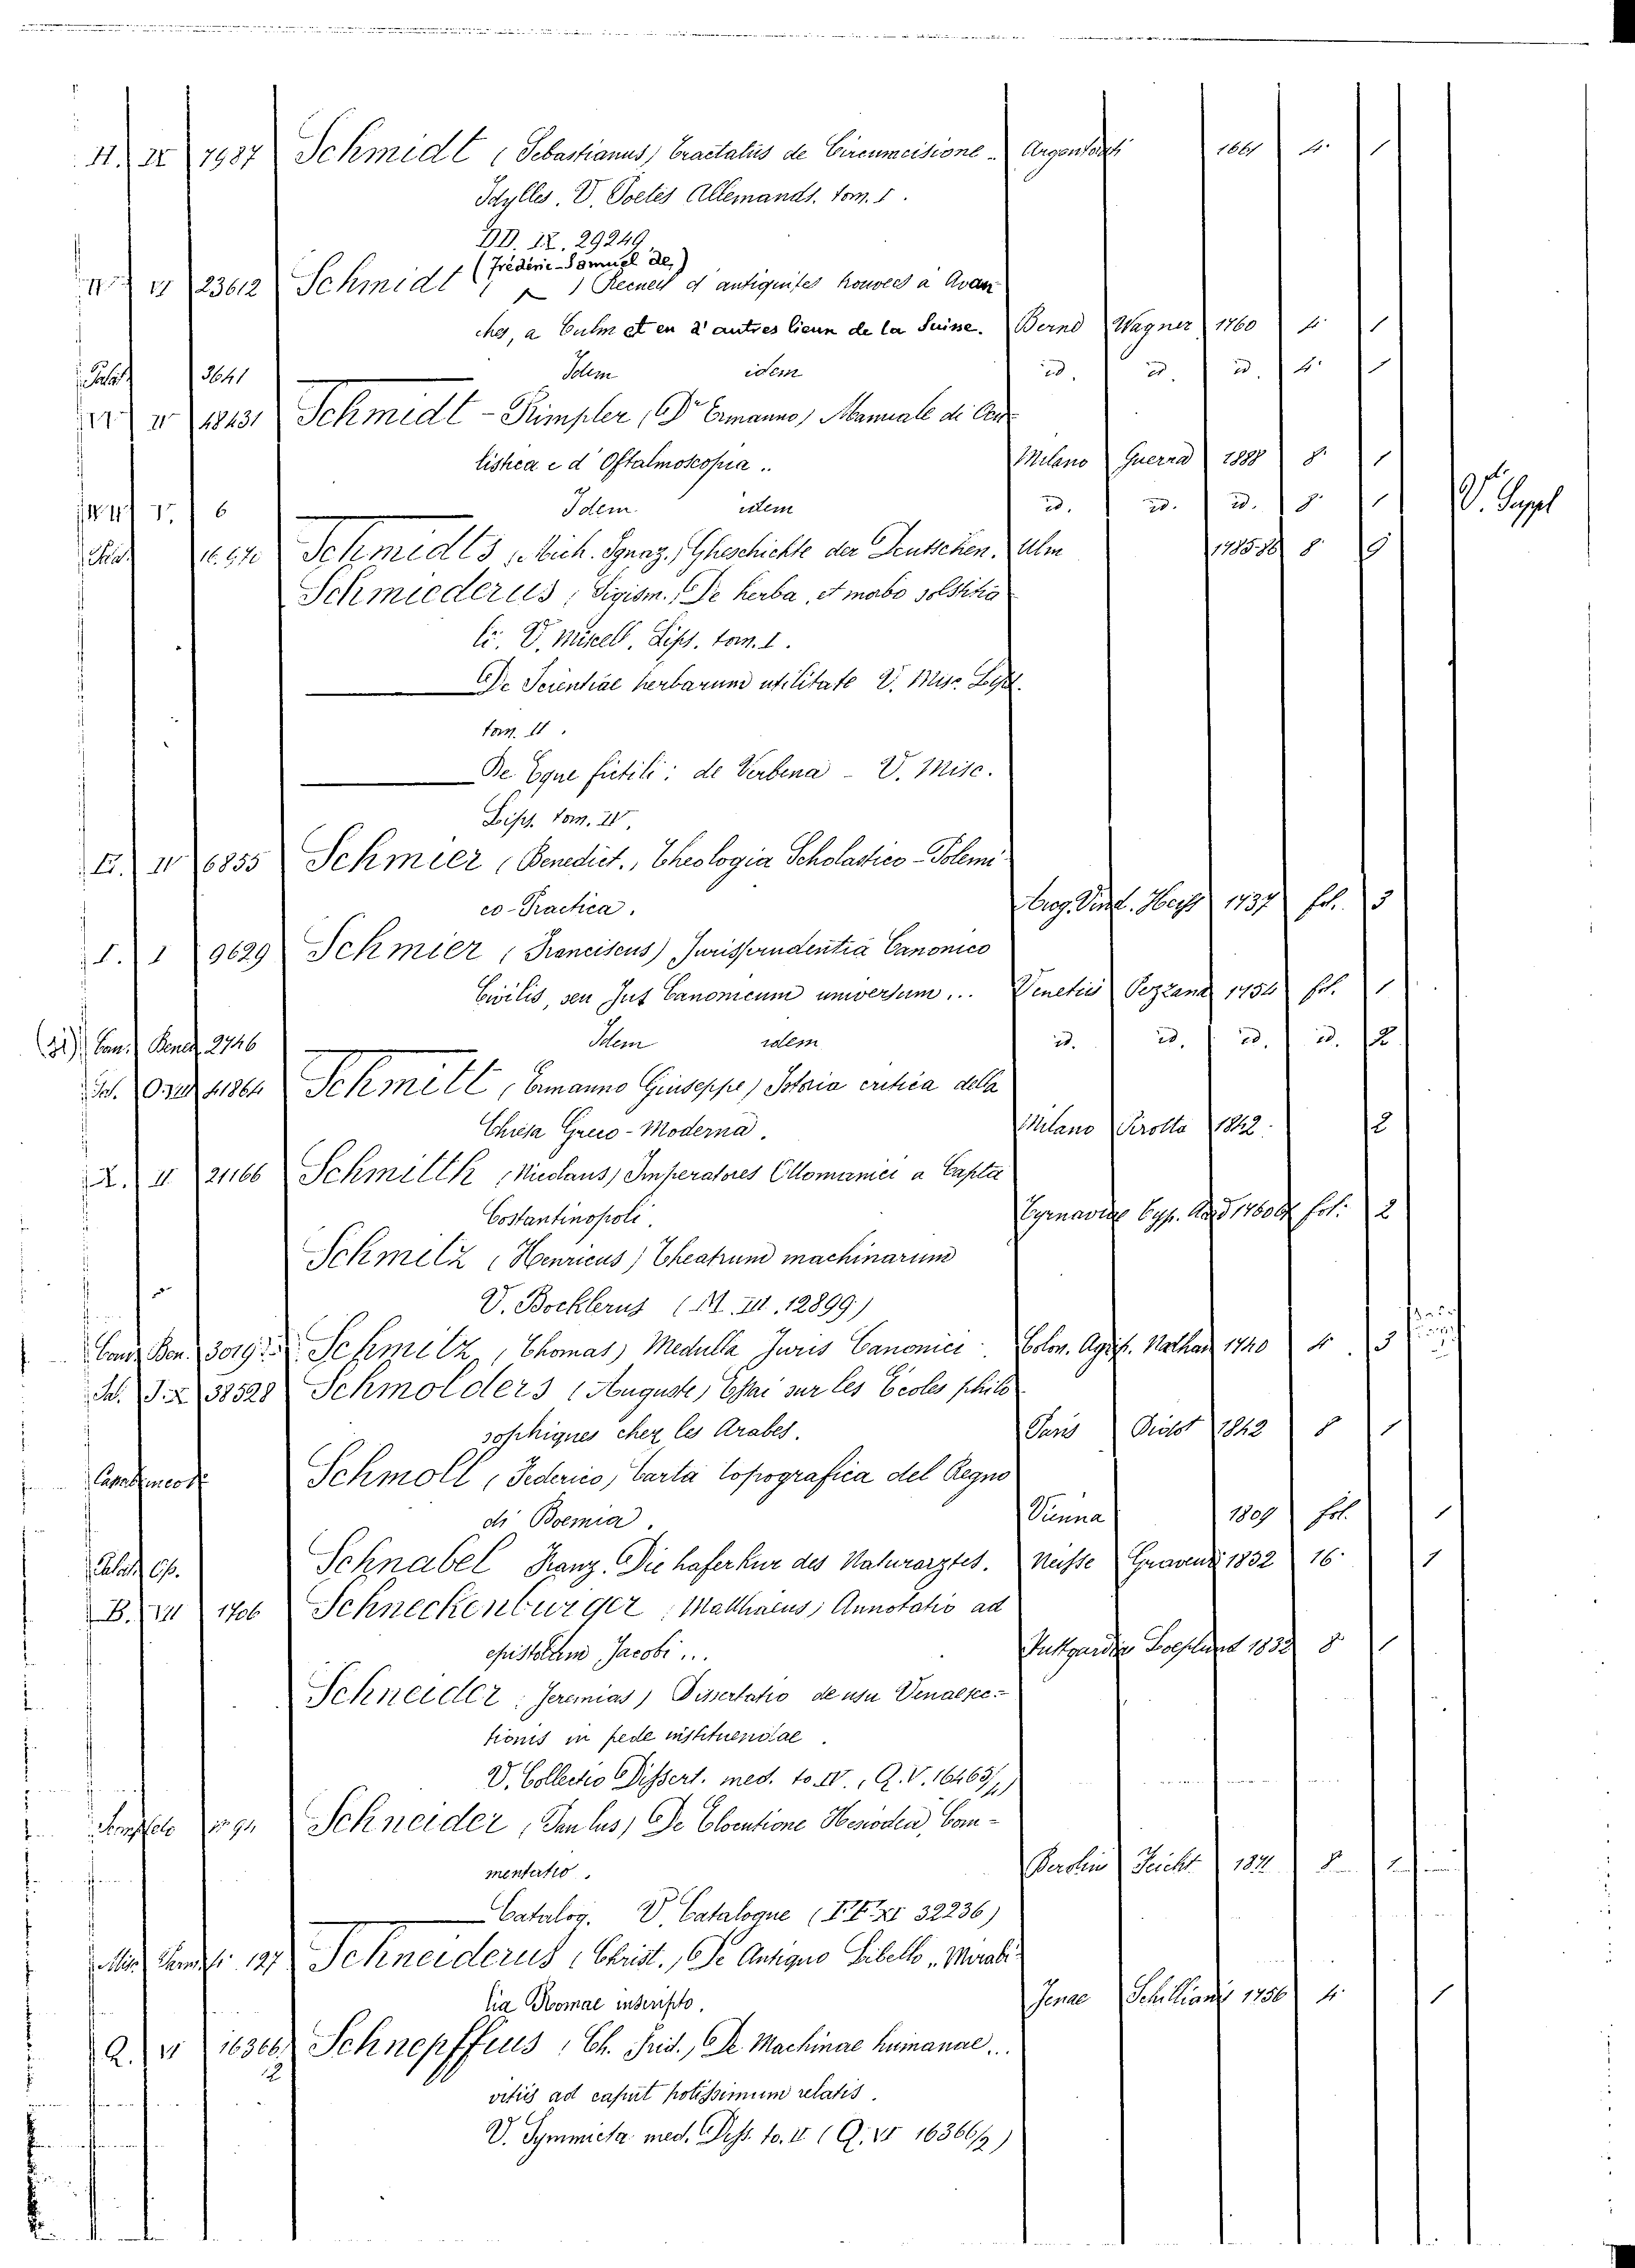 H. IX 7987 Schmidt (Sebastianus) Tractatus de Circumcisione. Argentorati 1661 4. 1
Idylles. V. Poetes Allemands. tom. I.
DD. IX. 29249.
(Fréderic-Samuel de)
VI 23612 Schmidt ( ) Recueil d'antiquites trouvees à Avan-
ches, a Culm et en d'autres lieux de la Suisse. Bernd Wagner 1760 4. 1
Palat. 3641 Idem idem id. id. id. 4. 1
18431 Schmidt-Rimpler (Dr Ermanno) Manuale di Ocu-
listica e d'Oftalmoscopia.. Milano Guerra 1888 8. 1
6 Idem idem id. id. id. 8. 1 V. Suppl
16.672 Schmidts, Mich. Ignaz. Gheschichte der Deutschen. Ulm 1785-88 8. 9
Schmiederus, Sigism. De herba, et morbo solstitia
li. V. Miscell. Lips. tom. I.
De Scientiae herbarum utilitate V. Misc. Lips.
tom. II.
De Eque fictili: de Verbena - V. Misc.
Lips. tom. IV.
E. IV 6855 Schmier (Benedict., Theologia Scholastico-Polemi-
co-Practica. Aug. Vind. Heyss 1737 fol. 3
I. I 9629 Schmier (Franciscus) Jurisprudentia Canonico
Civilis, seu Jus Canonicum universum... Venetiis Pezzana 1754 fol. 1
(31) Can. Bened. 2746 Idem idem id. id. id. id. 2
41864 Schmitt, Ermanno Giuseppe) Storia critica della
Chiesa Greco-Moderna. Milano Pirotta 1842. 2
X. II 21166 Schmitth (Nicolaus) Imperatores Ottomanici a Capta
Costantinopoli. Tyrnaviae Typ. Acad 1760 fol. 2
Schmitz (Henricus) Theatrum machinarum
V. Bocklerus (M. III. 12899)
Cand. Ben. 3019 Schmitz, (Thomas) Medulla Juris Canonici. Colon. Agrip. 1740 4. 3
38528 Schmölders (Auguste) Essai sur les Écoles philo
sophiques chez les Arabes. Paris Didot 1842 8 1
Schmoll (Federico) Carta topografica del Regno
di Boemia. Vienna 1809 fol. 1
Palat. Op. Schnabel Franz. Die haferkur des Naturarztes. Neisse 1832 16. 1
B. VII 1706 Schneckenburger, Matthaeus, Annotatio ad
epistolam Jacobi... Stuttgardiae Loeflund 1832 8 1
Schneider, Jeremias) Dissertatio de usu Venaesec-
tionis in pede instituendae.
V. Collectio Dissert. med. to. IV., Q. V. 16463/1)
Schneider, (Paulus) De Elocutione Hesiodea, Com-
mentatio. Berolini 1871 8 1
Catalog. V. Catalogue (FF. XI 32236)
127 Schneiderus, Christ., De Antiquo Libello "Mirabi-
lia Romae inscripto. Jenae Schillianis 1756 4. 1
Q. VI 16366/2 Schnepffius, Ch. Frid., De Machinae humanae...
vitiis ad caput potissimum relatis.
V. Symmicta med. Diss. to. II (Q. VI 16366/2)